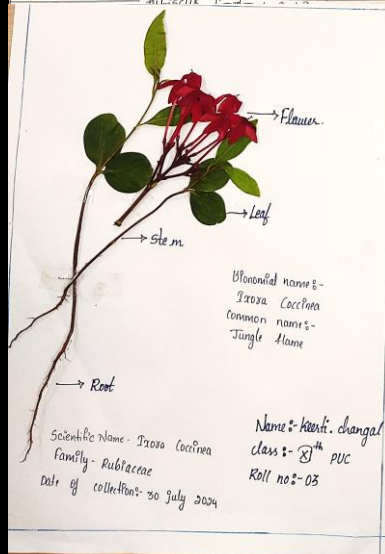 Flower.
Leaf
Stem
Bionomial name:-
Ixora Coccinea
Common name:-
Jungle flame
Root
Scientific Name - Ixora Coccinea
Family - Rubiaceae
Date of collection:- 30 july 2024
Name:- keerti. changal
class:- X th PUC
Roll no:- 03